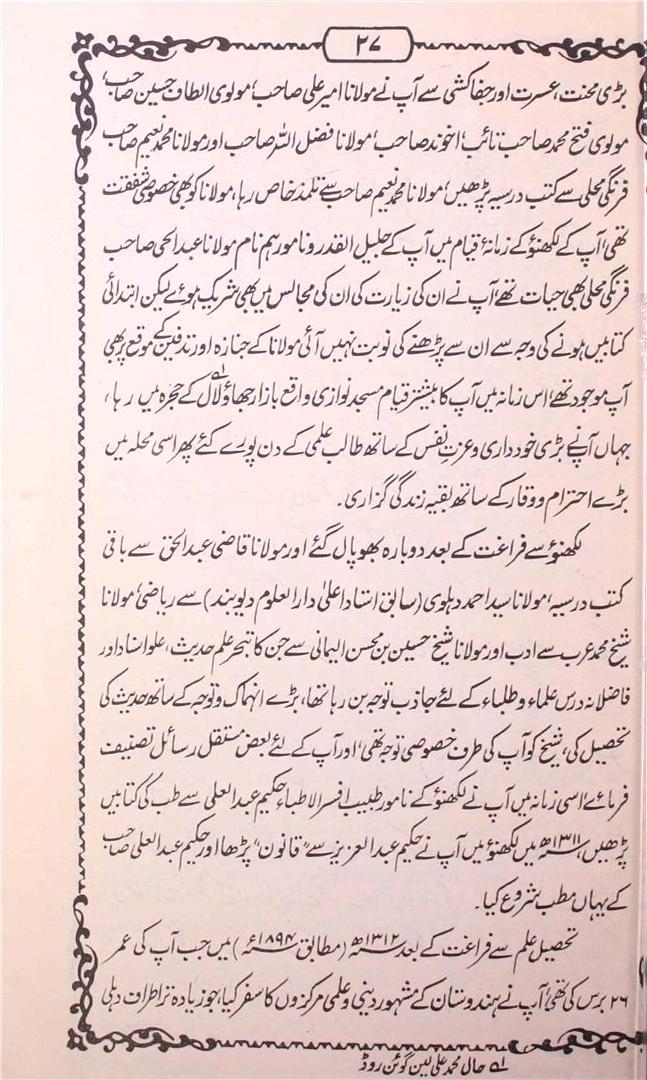 ۲۷
بڑی محنت، عسرت اور جفاکشی سے آپ نے مولانا امیر علی صاحب، مولوی الطاف حسین صاحب،
مولوی فتح محمد صاحب تائب، اخوند صاحب، مولانا فضل اللہ صاحب اور مولانا محمد نعیم صاحب
فرنگی محلی سے کتب درسیہ پڑھیں، مولانا محمد نعیم صاحب سے تلمذ خاص رہا، مولانا کو بھی خصوصی شفقت
تھی، آپ کے لکھنؤ کے زمانۂ قیام میں آپ کے جلیل القدر و نامور ہم نام مولانا عبدالحی صاحب
فرنگی محلی بھی حیات تھے، آپ نے ان کی زیارت کی ان کی مجالس میں بھی شریک ہوئے لیکن ابتدائی
کتابیں ہونے کی وجہ سے ان سے پڑھنے کی نوبت نہیں آئی مولانا کے جنازہ اور تدفین کے موقع پر بھی
آپ موجود تھے، اس زمانہ میں آپ کا بیشتر قیام مسجد نوازی واقع بازار جھاؤلال۱ کے حجرہ میں رہا،
جہاں آپ نے بڑی خودداری و عزتِ نفس کے ساتھ طالب علمی کے دن پورے کئے پھر اسی محلہ میں
بڑے احترام و وقار کے ساتھ بقیہ زندگی گزاری۔
لکھنؤ سے فراغت کے بعد دوبارہ بھوپال گئے اور مولانا قاضی عبدالحق سے باقی
کتب درسیہ، مولانا سید احمد دہلوی (سابق استاد اعلیٰ دارالعلوم دیوبند) سے ریاضی، مولانا
شیخ محمد عرب سے ادب اور مولانا شیخ حسین بن محسن الیمانی سے جن کا تبحر علم حدیث، علو اسناد اور
فاضلانہ درس علماء و طلباء کے لئے جاذب توجہ بن رہا تھا، بڑے انہماک و توجہ کے ساتھ حدیث کی
تحصیل کی، شیخ کو آپ کی طرف خصوصی توجہ تھی، اور آپ کے لئے بعض مستقل رسائل تصنیف
فرمائے، اسی زمانہ میں آپ نے لکھنؤ کے نامور طبیب افسر الاطباء حکیم عبدالعلی سے طب کی کتابیں
پڑھیں، ۱۳۱۱ھ میں لکھنؤ میں آپ نے حکیم عبدالعزیز سے "قانون" پڑھا اور حکیم عبدالعلی صاحب
کے یہاں مطب شروع کیا۔
تحصیل علم سے فراغت کے بعد ۱۳۱۲ھ (مطابق ۱۸۹۴ء) میں جب آپ کی عمر
۲۶ برس کی تھی، آپ نے ہندوستان کے مشہور دینی و علمی مرکزوں کا سفر کیا، جو زیادہ تر اطراف دہلی
۱ حال محمد علی لین گوئن روڈ